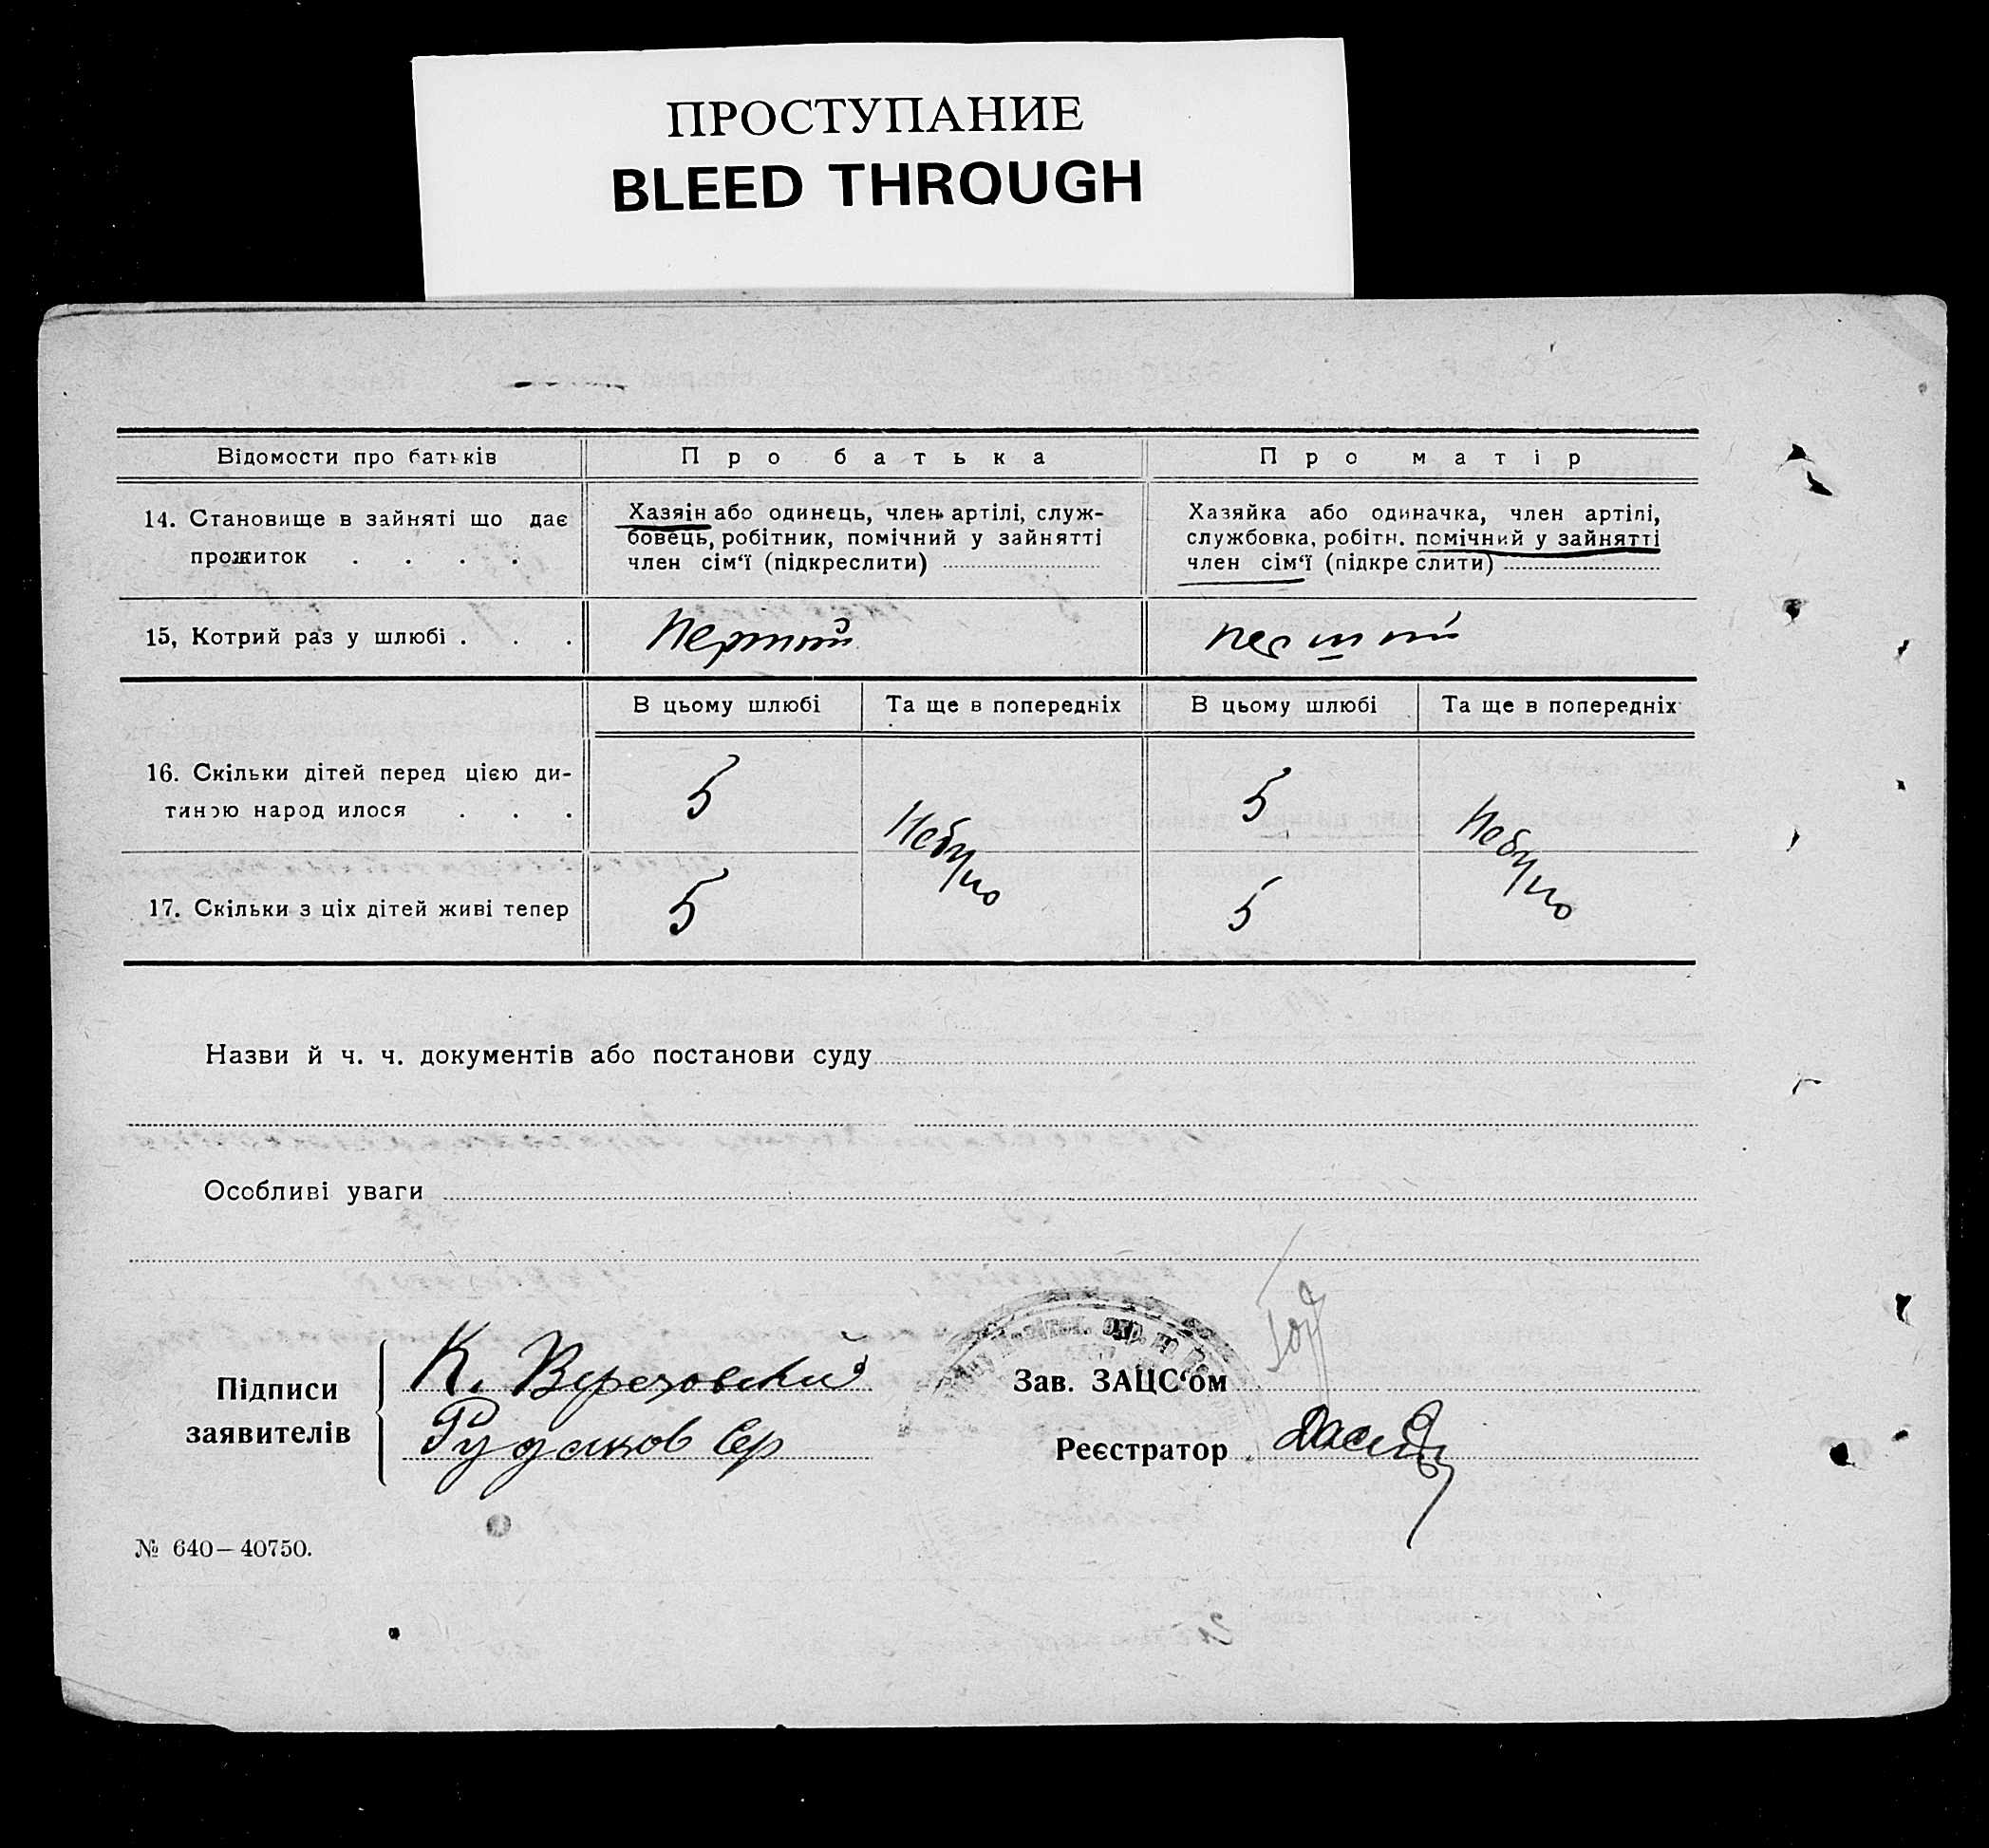 ПРОСТУПАНИЕ
BLEED THROUGH
Відомости про батьків
Про батька
Про матір
14. Становище в зайняті що дає
прожиток . . . .
Хазяін або одинець, член артілі, служ-
бовець, робітник, помічний у зайнятті
член сім‘ї (підкреслити)
Хазяйка або одиначка, член артілі,
службовка, робітн. помічний у зайнятті
член сім‘ї (підкреслити)
15, Котрий раз у шлюбі . . .
Перший
перший
В цьому шлюбі
Та ще в попередніх
В цьому шлюбі
Та ще в попередніх
16. Скільки дітей перед цією ди-
тиною народилося . . .
5
Небуло
5
Небуло
17. Скільки з ціх дітей живі тепер
5
5
Назви й ч. ч. документів або постанови суду
Особливі уваги
Підписи
заявителів
К. Вереховский
Рудаков Сер
Зав. ЗАЦС‘ом
Реєстратор
№ 640—40750.